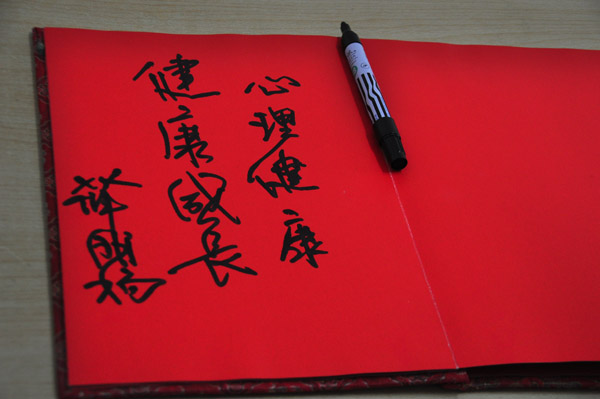 心理健康
健康成长